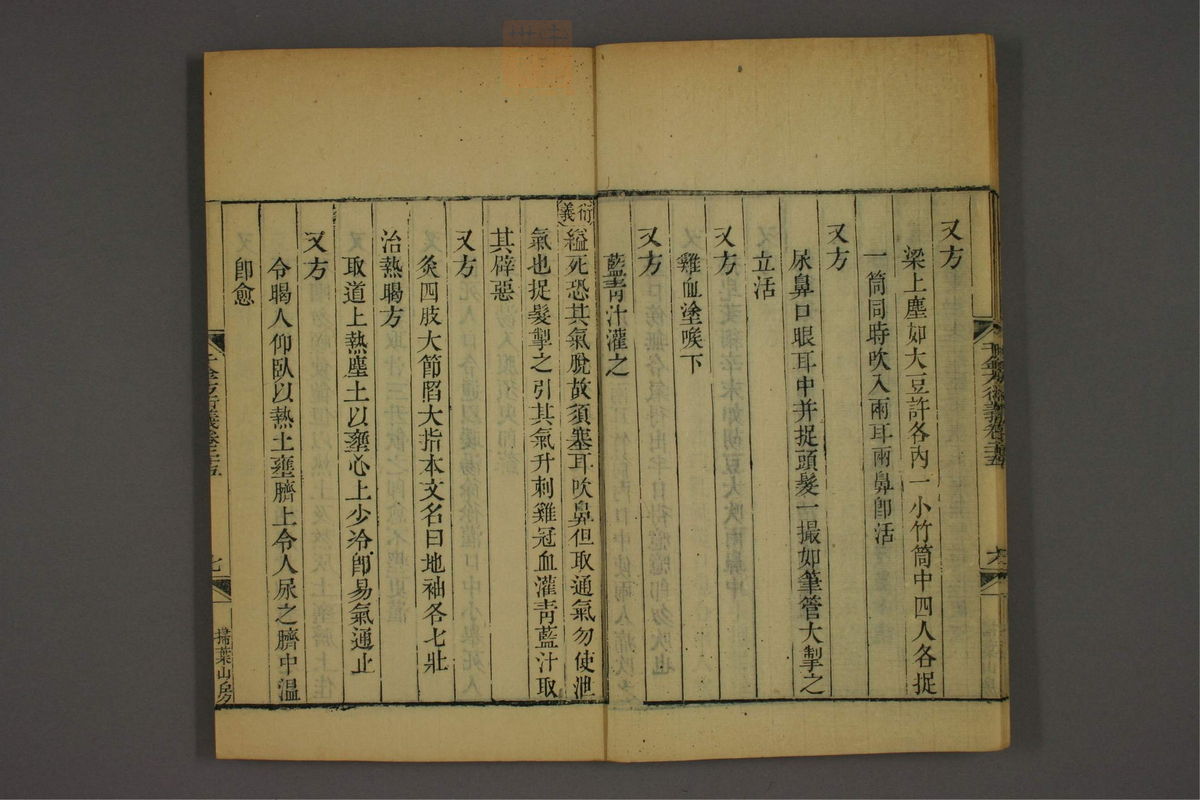 又方
梁上塵如大豆許各內一小竹筒中四人各捉
一筒同時吹入兩耳兩鼻卽活
又方
尿鼻口眼耳中并捉頭髮一撮如筆管大掣之
立活
又方
雞血塗喉下
又方
藍青汁灌之
衍義 縊死恐其氣脫故須塞耳吹鼻但取通氣勿使泄
氣也捉髮掣之引其氣升刺雞冠血灌青藍汁取
其辟惡
又方
灸四肢大節䧟大指本文名曰地袖各七壯
治熱暍方
取道上熱塵土以壅心上少冷卽易氣通止
又方
令暍人仰臥以熱土壅臍上令人尿之臍中溫
卽愈
千金方衍義卷二十五
七
掃葉山房